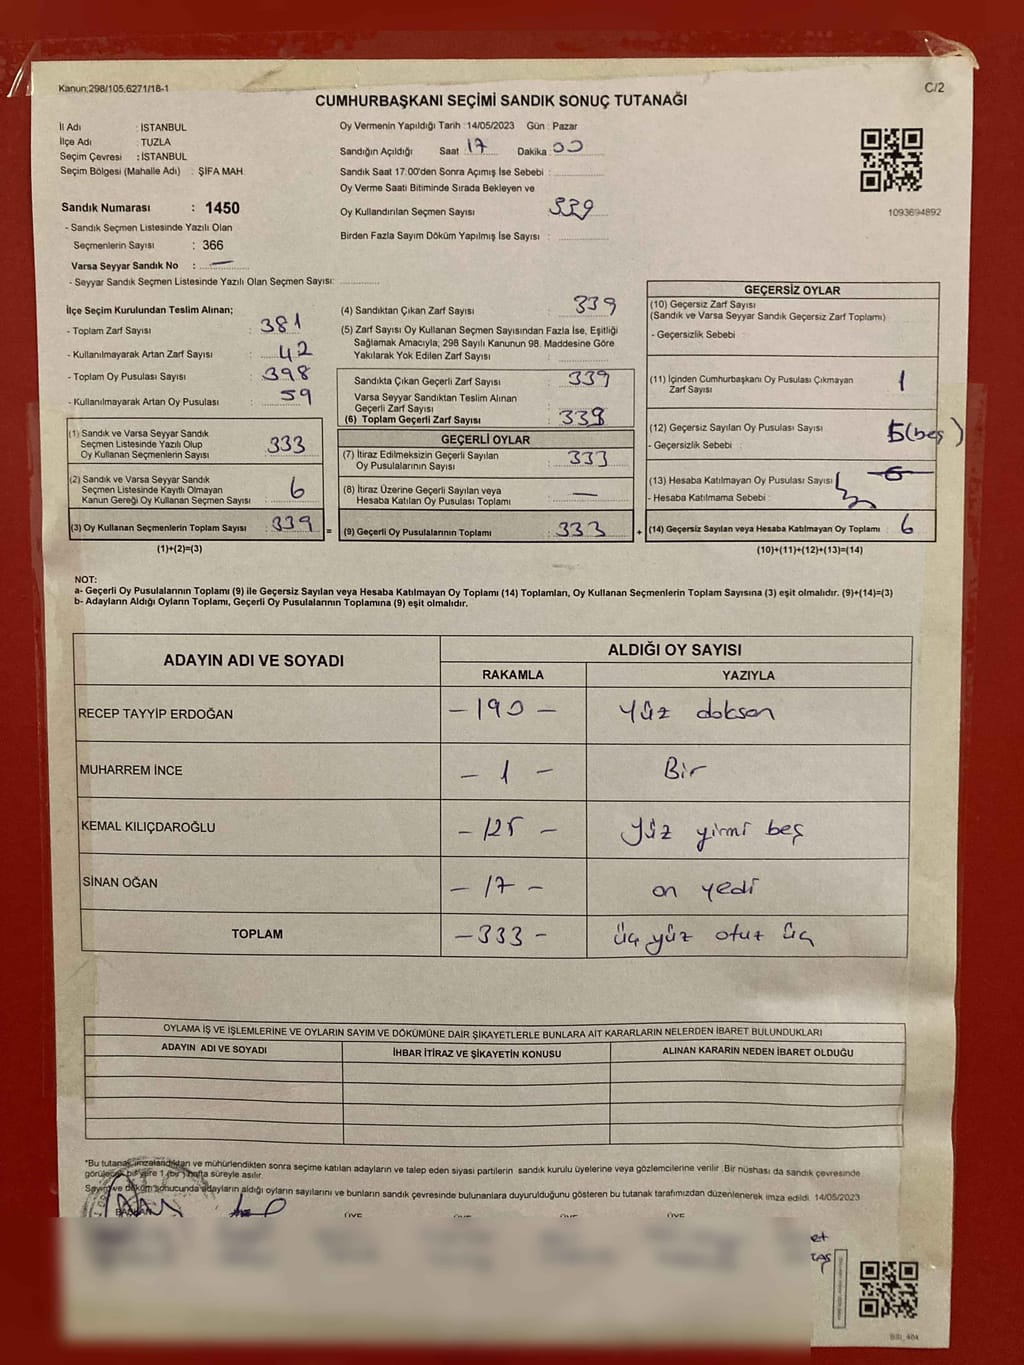 Kanun:298/105,6271/18-1
C/2
CUMHURBAŞKANI SEÇİMİ SANDIK SONUÇ TUTANAĞI
İl Adı : İSTANBUL
İlçe Adı : TUZLA
Seçim Çevresi : İSTANBUL
Seçim Bölgesi (Mahalle Adı) : ŞİFA MAH.
Sandık Numarası : 1450
- Sandık Seçmen Listesinde Yazılı Olan
Seçmenlerin Sayısı : 366
Varsa Seyyar Sandık No : —
- Seyyar Sandık Seçmen Listesinde Yazılı Olan Seçmen Sayısı:
Oy Vermenin Yapıldığı Tarih :14/05/2023 Gün : Pazar
Sandığın Açıldığı Saat 17 Dakika 00
Sandık Saat 17:00'den Sonra Açımış İse Sebebi :
Oy Verme Saati Bitiminde Sırada Bekleyen ve
Oy Kullandırılan Seçmen Sayısı 339
Birden Fazla Sayım Döküm Yapılmış İse Sayısı :
1093694892
İlçe Seçim Kurulundan Teslim Alınan;
- Toplam Zarf Sayısı : 381
- Kullanılmayarak Artan Zarf Sayısı : 42
- Toplam Oy Pusulası Sayısı : 398
- Kullanılmayarak Artan Oy Pusulası : 59
(1) Sandık ve Varsa Seyyar Sandık
Seçmen Listesinde Yazılı Olup
Oy Kullanan Seçmenlerin Sayısı : 333
(2) Sandık ve Varsa Seyyar Sandık
Seçmen Listesinde Kayıtlı Olmayan
Kanun Gereği Oy Kullanan Seçmen Sayısı : 6
(3) Oy Kullanan Seçmenlerin Toplam Sayısı : 339 =
(1)+(2)=(3)
(4) Sandıktan Çıkan Zarf Sayısı : 339
(5) Zarf Sayısı Oy Kullanan Seçmen Sayısından Fazla İse, Eşitliği
Sağlamak Amacıyla; 298 Sayılı Kanunun 98. Maddesine Göre
Yakılarak Yok Edilen Zarf Sayısı :
Sandıkta Çıkan Geçerli Zarf Sayısı : 339
Varsa Seyyar Sandıktan Teslim Alınan
Geçerli Zarf Sayısı :
(6) Toplam Geçerli Zarf Sayısı : 339
GEÇERLİ OYLAR
(7) İtiraz Edilmeksizin Geçerli Sayılan
Oy Pusulalarının Sayısı : 333
(8) İtiraz Üzerine Geçerli Sayılan veya
Hesaba Katılan Oy Pusulası Toplamı : —
(9) Geçerli Oy Pusulalarının Toplamı : 333 +
GEÇERSİZ OYLAR
(10) Geçersiz Zarf Sayısı
(Sandık ve Varsa Seyyar Sandık Geçersiz Zarf Toplamı)
- Geçersizlik Sebebi :
(11) İçinden Cumhurbaşkanı Oy Pusulası Çıkmayan
Zarf Sayısı : 1
(12) Geçersiz Sayılan Oy Pusulası Sayısı : 5(beş)
- Geçersizlik Sebebi :
(13) Hesaba Katılmayan Oy Pusulası Sayısı
- Hesaba Katılmama Sebebi :
(14) Geçersiz Sayılan veya Hesaba Katılmayan Oy Toplamı : 6
(10)+(11)+(12)+(13)=(14)
NOT:
a- Geçerli Oy Pusulalarının Toplamı (9) ile Geçersiz Sayılan veya Hesaba Katılmayan Oy Toplamı (14) Toplamları, Oy Kullanan Seçmenlerin Toplam Sayısına (3) eşit olmalıdır. (9)+(14)=(3)
b- Adayların Aldığı Oyların Toplamı, Geçerli Oy Pusulalarının Toplamına (9) eşit olmalıdır.
ADAYIN ADI VE SOYADI
ALDIĞI OY SAYISI
RAKAMLA YAZIYLA
RECEP TAYYİP ERDOĞAN - 190 - Yüz doksan
MUHARREM İNCE - 1 - Bir
KEMAL KILIÇDAROĞLU - 125 - Yüz yirmi beş
SİNAN OĞAN - 17 - on yedi
TOPLAM - 333 - üç yüz otuz üç
OYLAMA İŞ VE İŞLEMLERİNE VE OYLARIN SAYIM VE DÖKÜMÜNE DAİR ŞİKAYETLERLE BUNLARA AİT KARARLARIN NELERDEN İBARET BULUNDUKLARI
ADAYIN ADI VE SOYADI İHBAR İTİRAZ VE ŞİKAYETİN KONUSU ALINAN KARARIN NEDEN İBARET OLDUĞU
*Bu tutanak imzalandıktan ve mühürlendikten sonra seçime katılan adayların ve talep eden siyasi partilerin sandık kurulu üyelerine veya gözlemcilerine verilir .Bir nüshası da sandık çevresinde
görülecek bir yere 1 (bir) hafta süreyle asılır.
Sayım ve döküm sonucunda adayların aldığı oyların sayılarını ve bunların sandık çevresinde bulunanlara duyurulduğunu gösteren bu tutanak tarafımızdan düzenlenerek imza edildi. 14/05/2023
BAŞKAN ÜYE ÜYE ÜYE ÜYE